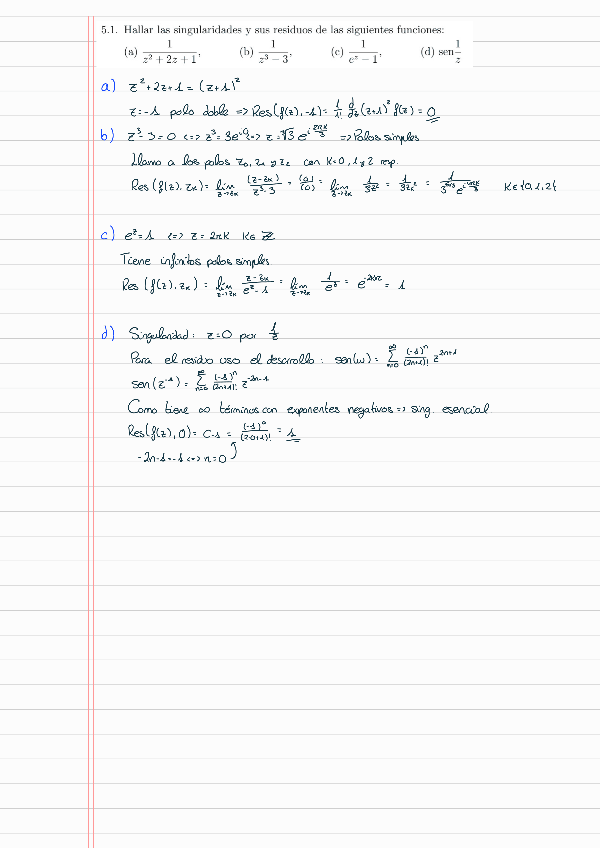 5.1. Hallar las singularidades y sus residuos de las siguientes funciones:
(a) 1/(z² + 2z + 1), (b) 1/(z³ − 3), (c) 1/(eᶻ − 1), (d) sen 1/z
a) z² + 2z + 1 = (z+1)²
z = -1 polo doble => Res(f(z), -1) = 1/1! d/dz (z+1)² f(z) = 0
b) z³ - 3 = 0 <=> z³ = 3e^{i0} <=> z = ∛3 e^{i 2πk/3} => Polos simples
Llamo a los polos z₀, z₁ y z₂ con K=0, 1 y 2 resp.
Res(f(z), zₖ) = lim_{z→zₖ} (z-zₖ)/(z³-3) = (0)/(0) = lim_{z→zₖ} 1/3z² = 1/3zₖ² = K∈{0,1,2}
c) eᶻ = 1 <=> z = 2πK K∈ℤ
Tiene infinitos polos simples
Res(f(z), zₖ) = lim_{z→zₖ} (z-zₖ)/(eᶻ-1) = lim_{z→zₖ} 1/eᶻ = = 1
d) Singularidad: z=0 por 1/z
Para el residuo uso el desarrollo: sen(w) = Σ_{n=0}^{∞} (-1)ⁿ/(2n+1)! z^{2n+1}
sen(z⁻¹) = Σ_{n=0}^{∞} (-1)ⁿ/(2n+1)! z^{-2n-1}
Como tiene ∞ términos con exponentes negativos => sing. esencial
Res(f(z), 0) = C₋₁ = (-1)⁰/(2·0+1)! = 1
-2n-1=-1 <=> n=0